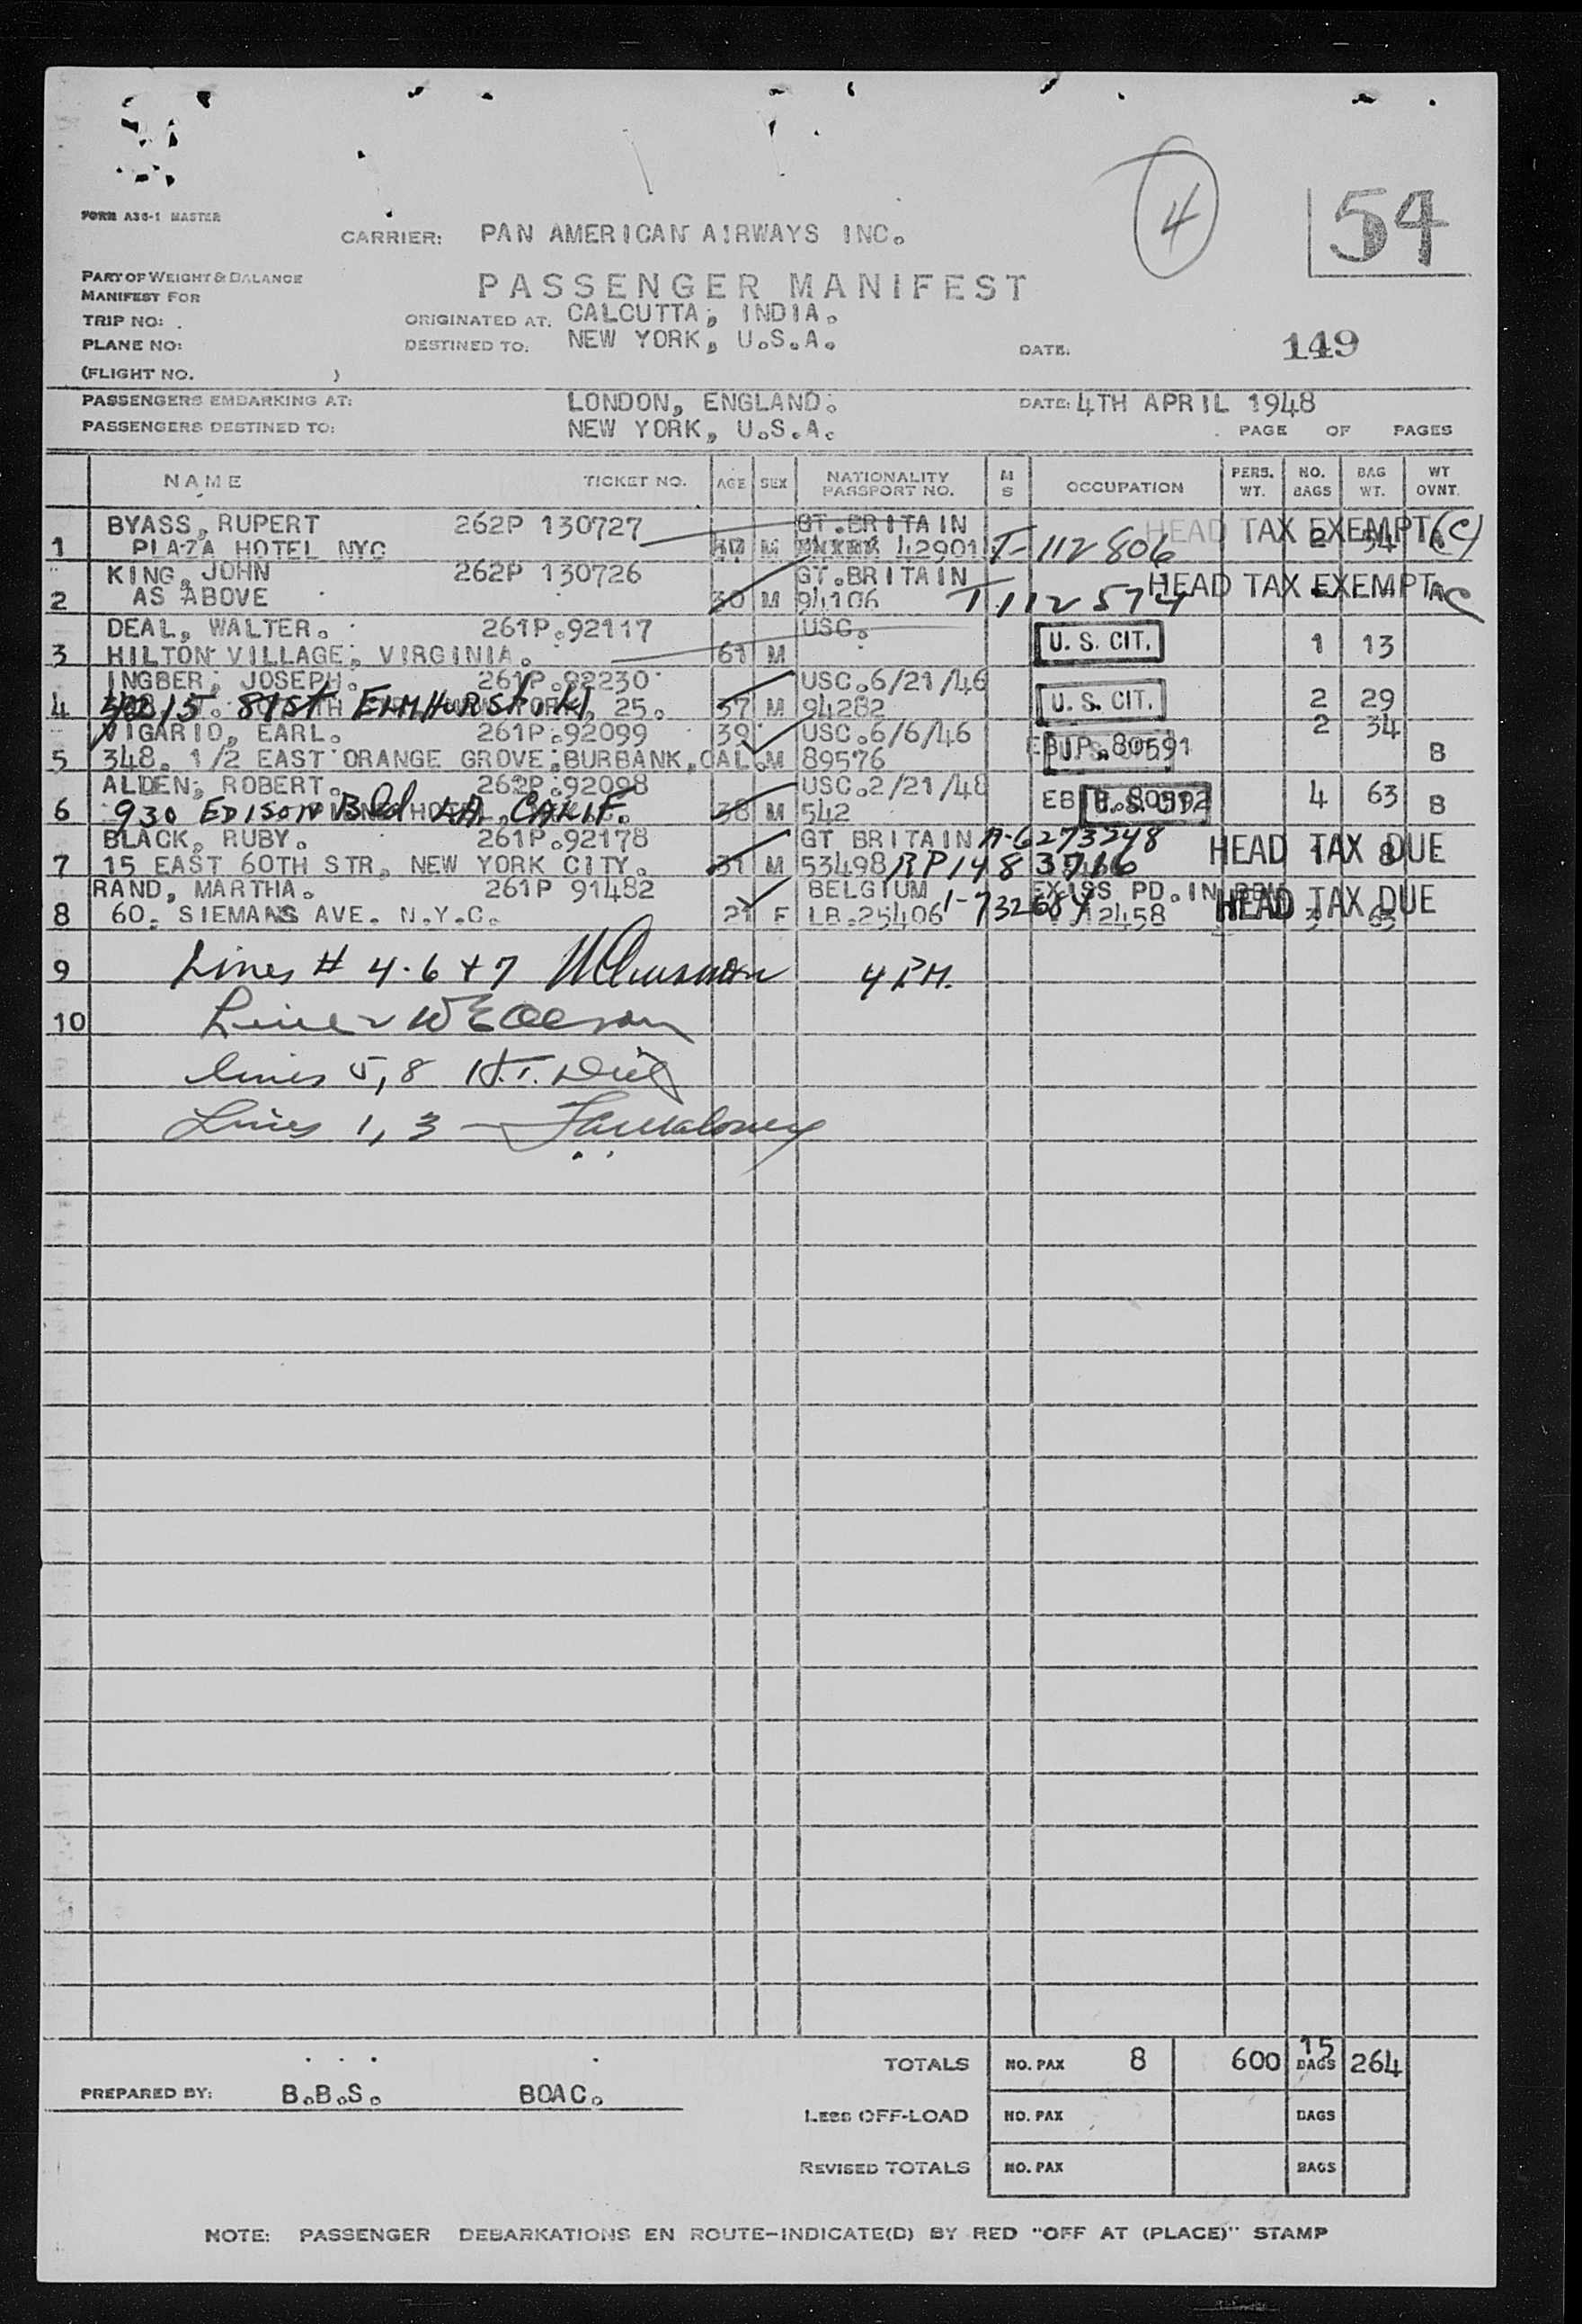 4
54
FORM A36-1 MASTER
CARRIER: PAN AMERICAN AIRWAYS INC.
PART OF WEIGHT & BALANCE
MANIFEST FOR
PASSENGER MANIFEST
TRIP NO:
ORIGINATED AT: CALCUTTA, INDIA.
PLANE NO:
DESTINED TO: NEW YORK, U.S.A.
DATE.
149
(FLIGHT NO. )
PASSENGERS EMBARKING AT: LONDON, ENGLAND. DATE: 4TH APRIL 1948
PASSENGERS DESTINED TO: NEW YORK, U.S.A.
PAGE OF PAGES
NAME TICKET NO. AGE SEX NATIONALITY PASSPORT NO. M S OCCUPATION PERS. WT. NO. BAGS BAG WT. WT OVNT.
BYASS, RUPERT 262P 130727 GT.BRITAIN HEAD TAX EXEMPT (C)
1 PLAZA HOTEL NYC M 42901 T-112806 2
KING, JOHN 262P 130726 GT.BRITAIN HEAD TAX EXEMPT
2 AS ABOVE 30 M 94106 T112574 C
DEAL, WALTER. 261P.92117 USC. U. S. CIT.
3 HILTON VILLAGE, VIRGINIA. 61 M 1 13
INGBER, JOSEPH. 261P.92230 USC.6/21/46 U. S. CIT.
4 4215 81st ELMHURST 25. 37 M 94282 2 29
VIGARIO, EARL. 261P.92099 39 USC.6/6/46 2 34
5 348. 1/2 EAST ORANGE GROVE, BURBANK, CAL. M 89576 80591 B
ALDEN, ROBERT. 262P.92098 USC.2/21/48
6 930 EDISON Bld LA, CALIF. 38 M 542 EB U. S. CIT. 4 63 B
BLACK, RUBY. 261P.92178 GT BRITAIN A-6273248
7 15 EAST 60TH STR, NEW YORK CITY. 31 M 53498 RP1483716 HEAD TAX DUE
RAND, MARTHA. 261P 91482 BELGIUM PD. IN
8 60. SIEMANS AVE. N.Y.C. 21 F LB.25406 12458 HEAD TAX DUE 63
9 Lines # 4.6 + 7 4 P.M.
10
Lines 5, 8 H.T.
Lines 1, 3 —
TOTALS NO. PAX 8 600 15 BAGS 264
PREPARED BY: B.B.S. BOAC.
LESS OFF-LOAD NO. PAX BAGS
REVISED TOTALS NO. PAX BAGS
NOTE: PASSENGER DEBARKATIONS EN ROUTE-INDICATE(D) BY RED "OFF AT (PLACE)" STAMP